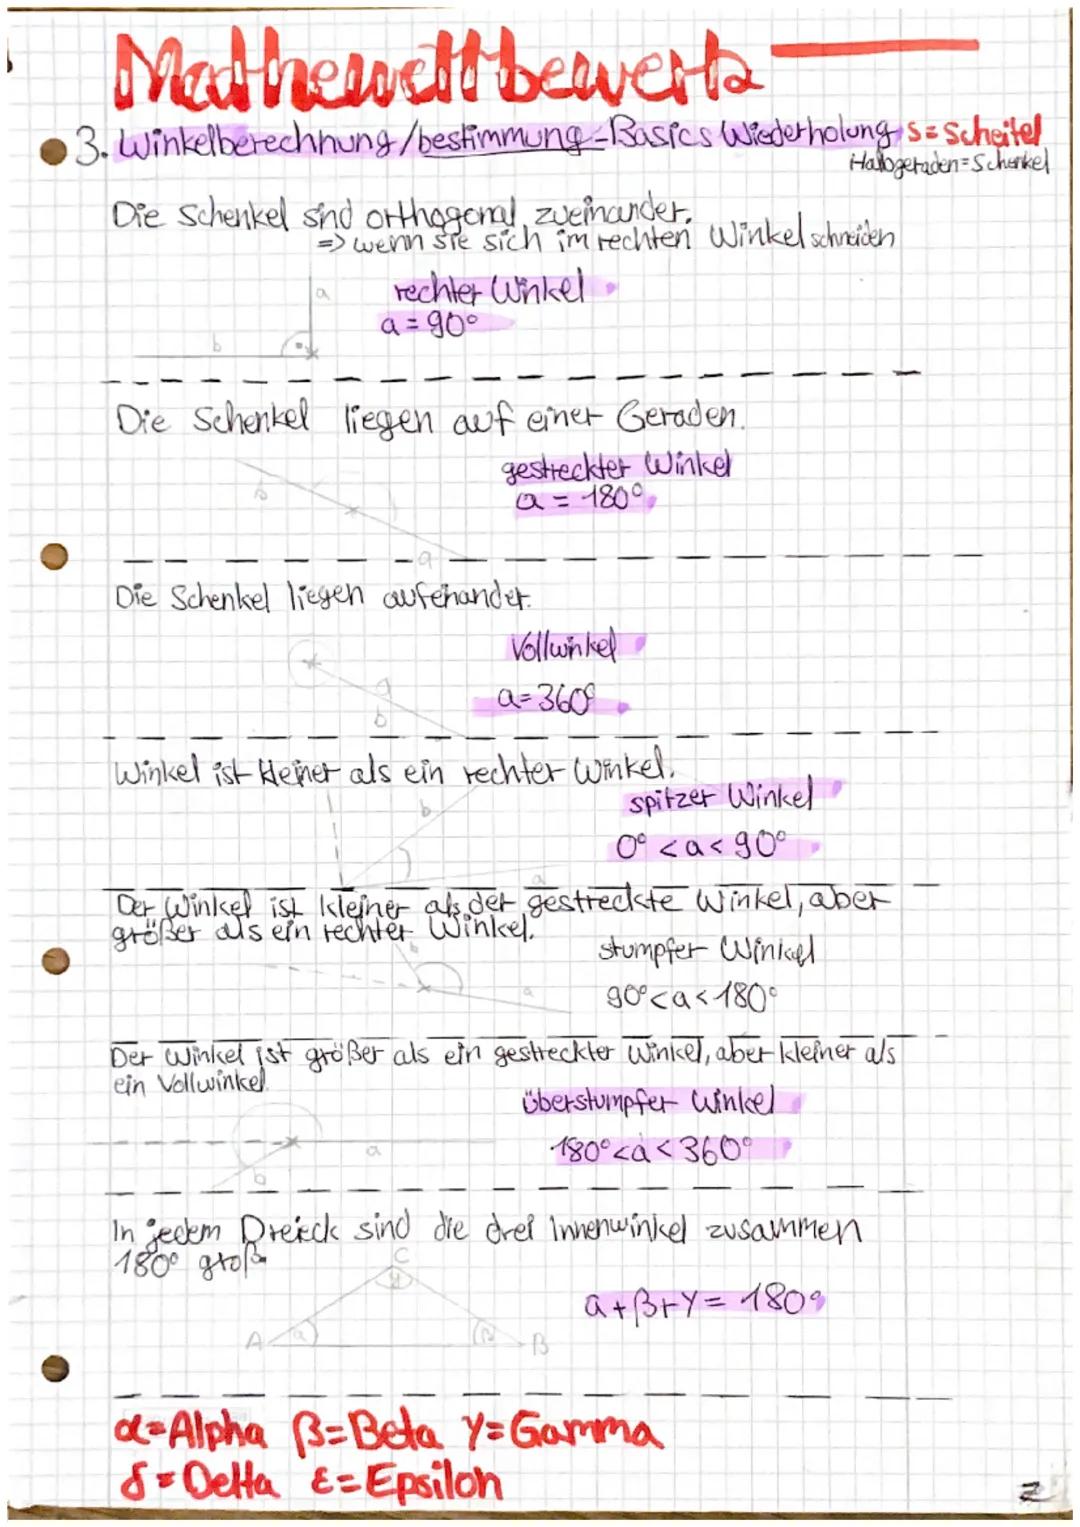 Mathewettbewerb
3. Winkelberechnung/bestimmung-Basics Wiederholung S=Scheitel
Halbgeraden=Schenkel
Die Schenkel sind orthogonal zueinander.
=> wenn sie sich im rechten Winkel schneiden
rechter Winkel
a
a = 90°
b
Die Schenkel liegen auf einer Geraden.
gestreckter Winkel
b
a = 180°
a
Die Schenkel liegen aufeinander.
Vollwinkel
a
a=360°
b
Winkel ist kleiner als ein rechter Winkel.
spitzer Winkel
b
0° <a< 90°
a
Der Winkel ist kleiner als der gestreckte Winkel, aber
größer als ein rechter Winkel.
stumpfer Winkel
b
a
90°<a<180°
Der Winkel ist größer als ein gestreckter Winkel, aber kleiner als
ein Vollwinkel.
überstumpfer Winkel
a
180°<a<360°
b
In jedem Dreieck sind die drei Innenwinkel zusammen
180° groß
C
γ
a+β+γ= 180°
A a β B
α=Alpha β=Beta γ=Gamma
δ=Delta ε=Epsilon
2